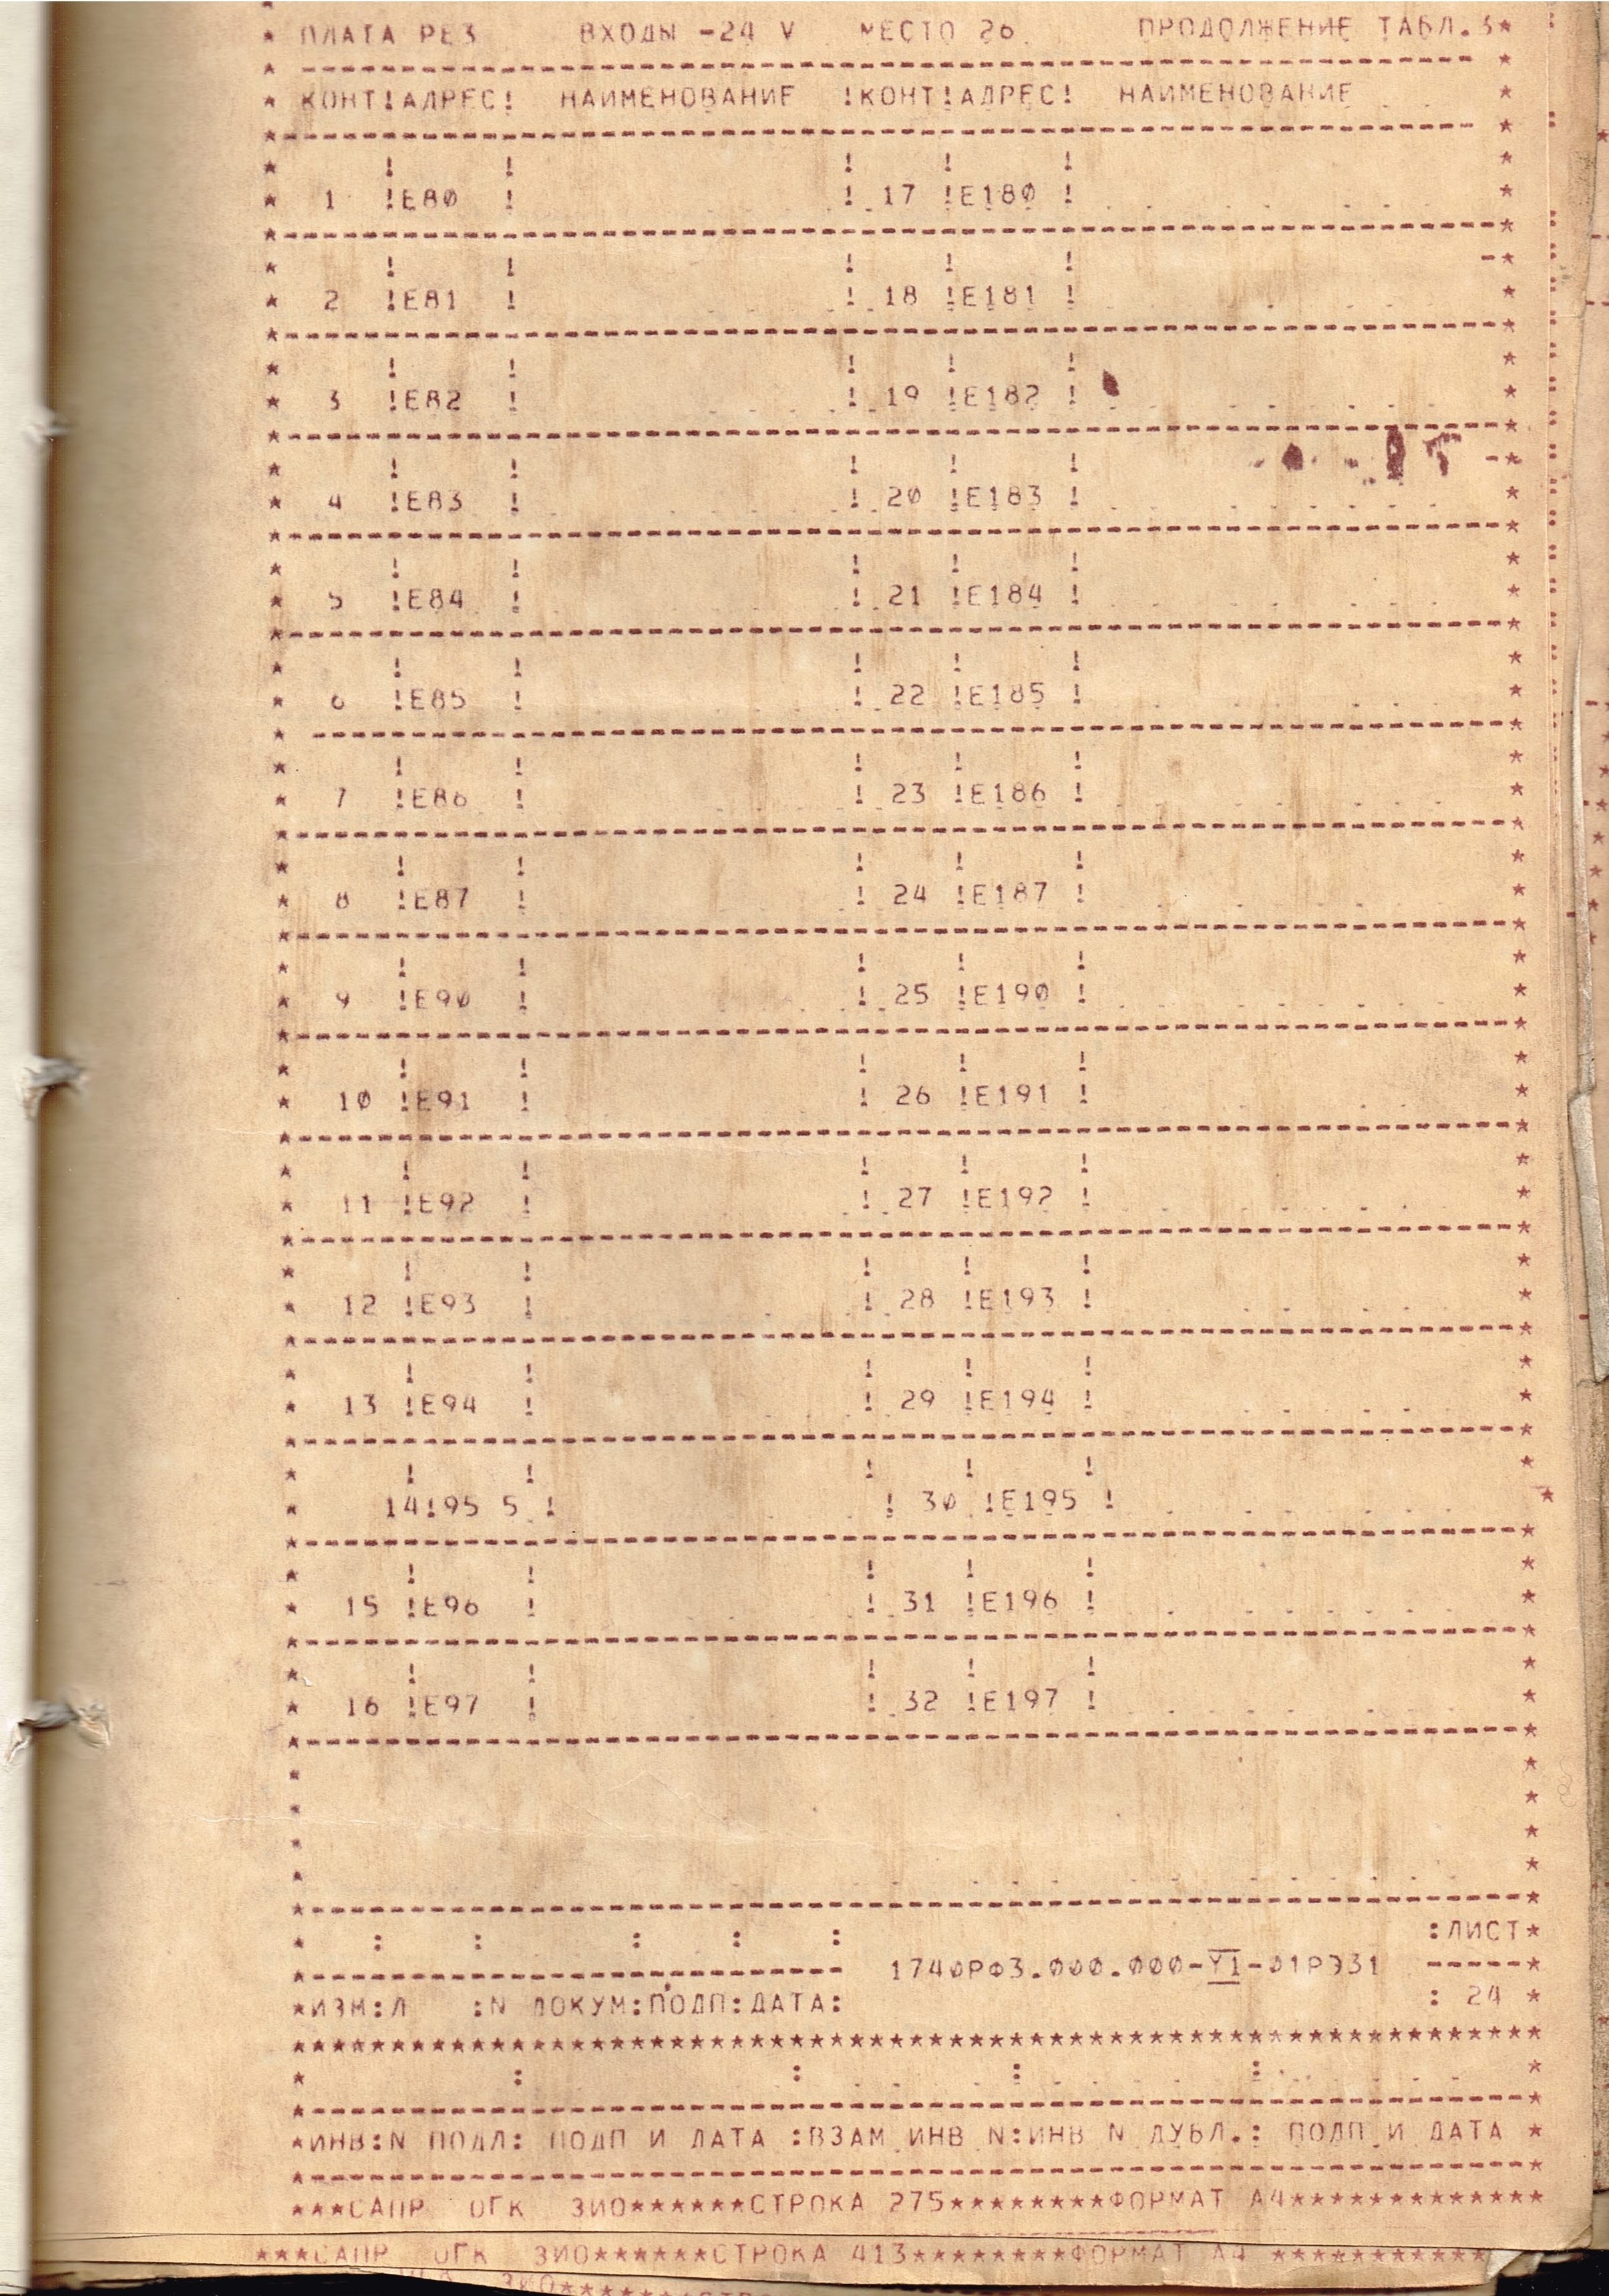 * ПЛАТА РЕЗ ВХОДЫ -24 V МЕСТО 26 ПРОДОЛЖЕНИЕ ТАБЛ.3*
* КОНТ!АДРЕС! НАИМЕНОВАНИЕ !КОНТ!АДРЕС! НАИМЕНОВАНИЕ *
* 1 !E80 ! ! 17 !E180 ! *
* 2 !E81 ! ! 18 !E181 ! *
* 3 !E82 ! ! 19 !E182 ! *
* 4 !E83 ! ! 20 !E183 ! *
* 5 !E84 ! ! 21 !E184 ! *
* 6 !E85 ! ! 22 !E185 ! *
* 7 !E86 ! ! 23 !E186 ! *
* 8 !E87 ! ! 24 !E187 ! *
* 9 !E90 ! ! 25 !E190 ! *
* 10 !E91 ! ! 26 !E191 ! *
* 11 !E92 ! ! 27 !E192 ! *
* 12 !E93 ! ! 28 !E193 ! *
* 13 !E94 ! ! 29 !E194 ! *
* 14!95 5 ! ! 30 !E195 ! *
* 15 !E96 ! ! 31 !E196 ! *
* 16 !E97 ! ! 32 !E197 ! *
:ЛИСТ*
1740РФ3.000.000-Y1-01РЭ31
*ИЗМ:Л :N ДОКУМ:ПОДП:ДАТА: : 24 *
*ИНВ:N ПОДЛ: ПОДП И ДАТА :ВЗАМ ИНВ N:ИНВ N ДУБЛ.: ПОДП И ДАТА *
***САПР ОГК ЗИО******СТРОКА 275********ФОРМАТ А4*************
***САПР ОГК ЗИО******СТРОКА 413********ФОРМАТ А4 ***********